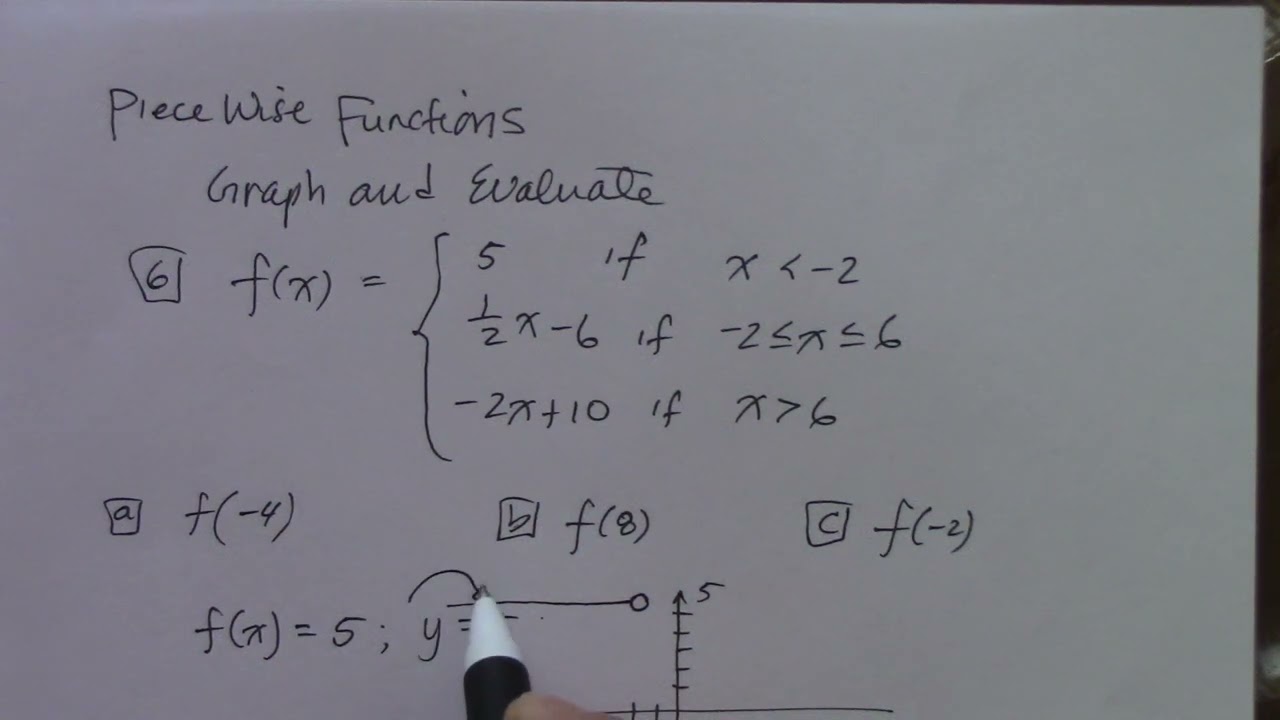 PieceWise Functions
Graph and Evaluate
6 f(x) = { 5 if x < -2
1/2 x - 6 if -2 ≤ x ≤ 6
-2x + 10 if x > 6
a f(-4) b f(8) c f(-2)
5
f(x) = 5 ; y =